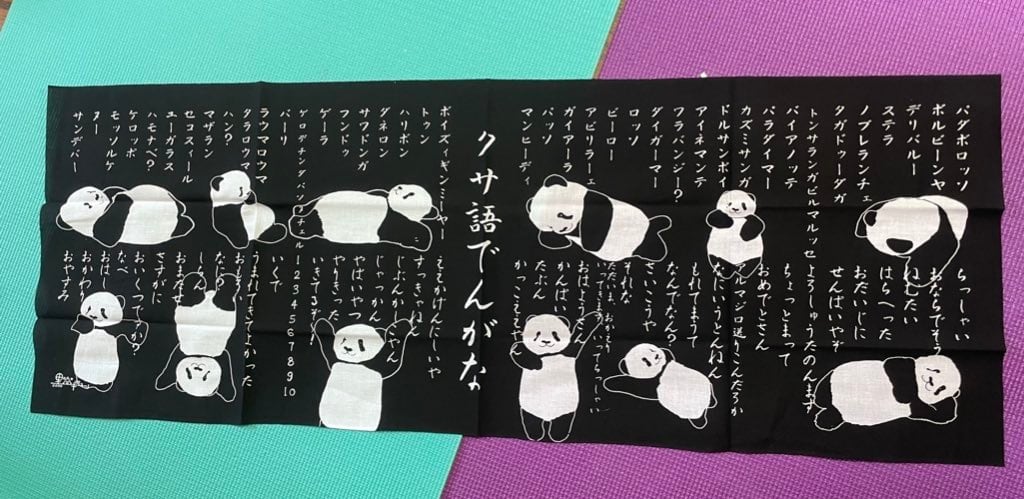 パダボロッソ
ボルビーンヤ
デリバルー
ステラ
ノブレランチェ
タガドゥーダガ
トンサランガビルマルッセ
バイアノッテ
パラダイマー
カズミサンガ
ドルサンボイ
アイネマンテ
フラバンシー?
ダイガーマー
ロッソ
ビーロー
アビリラーェ
ガイアーラ
バッソ
マンヒーディ
らっしゃい
おならですぅ
ねむたい
はらへった
おだいじに
せんぱいやぞ
よろしゅうたのんます
ちょっとまって
おめでとさん
なにいうとんねん
おもろまうて
なんでなん?
さいこうや
それな
おはようさん
かんぱい
たぶん
かっこええで
クサ語でんがな
ボイズ、イギンミーヤー
トゥン
ハリボン
ダネロン
サワドンガ
フンドゥ
ゲーラ
バーリ
ラウマロウマ
タラロウマ
ハンゥ?
マザラン
セコスィール
エーガラス
ハモナベ?
ケロッポ
モッソルナ
ター
サンデバー
ええかげんにしいや
すっきゃねん
じぶんかしこいやん
じゃっかん
やばいやつ
やりきった
いきてるぞー!
12345678910
いくで
うまれてきてよかった
おもろい
なに?
しらん
おまたせ
さすがに
おいくつですか?
なべ
おはし
おかわり
おやすみ